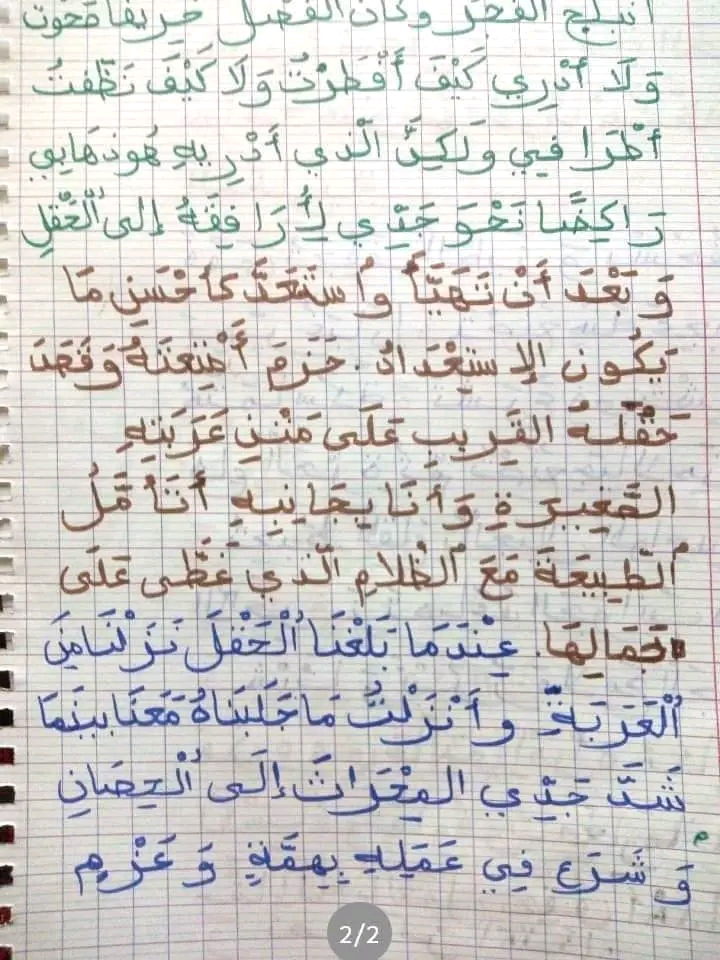 انبلج الفجر وكان الفصل خريفا فصحوت
وَلَا أَدْرِي كَيْفَ أَفْطَرْتُ وَلَا كَيْفَ نَظَّفتُ
أطْرَافِي وَلَكِنَّ الَّذي أَدْرِ بِهِ هُوذهَابِي
رَاكِضًا نَحْوَ جَدِّي لِأُرَافِقَهُ إلى اُلْحَقْلِ
وَبَعْدَ أَنْ تَهَيَّأَ واُسْتَعَدَّ كأحْسَنِ مَا
يَكُون الإستِعْدَادُ. حَزَمَ أَمْتِعَتَهُ وَقَصَدَ
حَقْلَهُ القَرِيبِ عَلَى مَتْنِ عَرَبَتِهِ
الصَّغِيرَةِ وَأَنَا بِجَانِبِهِ أَتَأَمَّلُ
اُلطَّبِيعَةَ مَعَ اُلظَّلامِ الَّذي غَطَّى عَلَى
جَمَالِهَا. عِنْدَمَا بَلَغْنَا اُلْحَقْلَ نَزَلْنَا مِنَ
اُلْعَرَبَةِ وأَنْزَلْتُ مَا جَلَبْنَاهُ مَعَنَا بينَمَا
شَدَّ جَدِّي المِحْرَاثَ إلَى اُلْحِصَانِ
وَشَرَعَ فِي عَمَلِهِ بِهِمَّةٍ وَعَزْمٍ
2/2